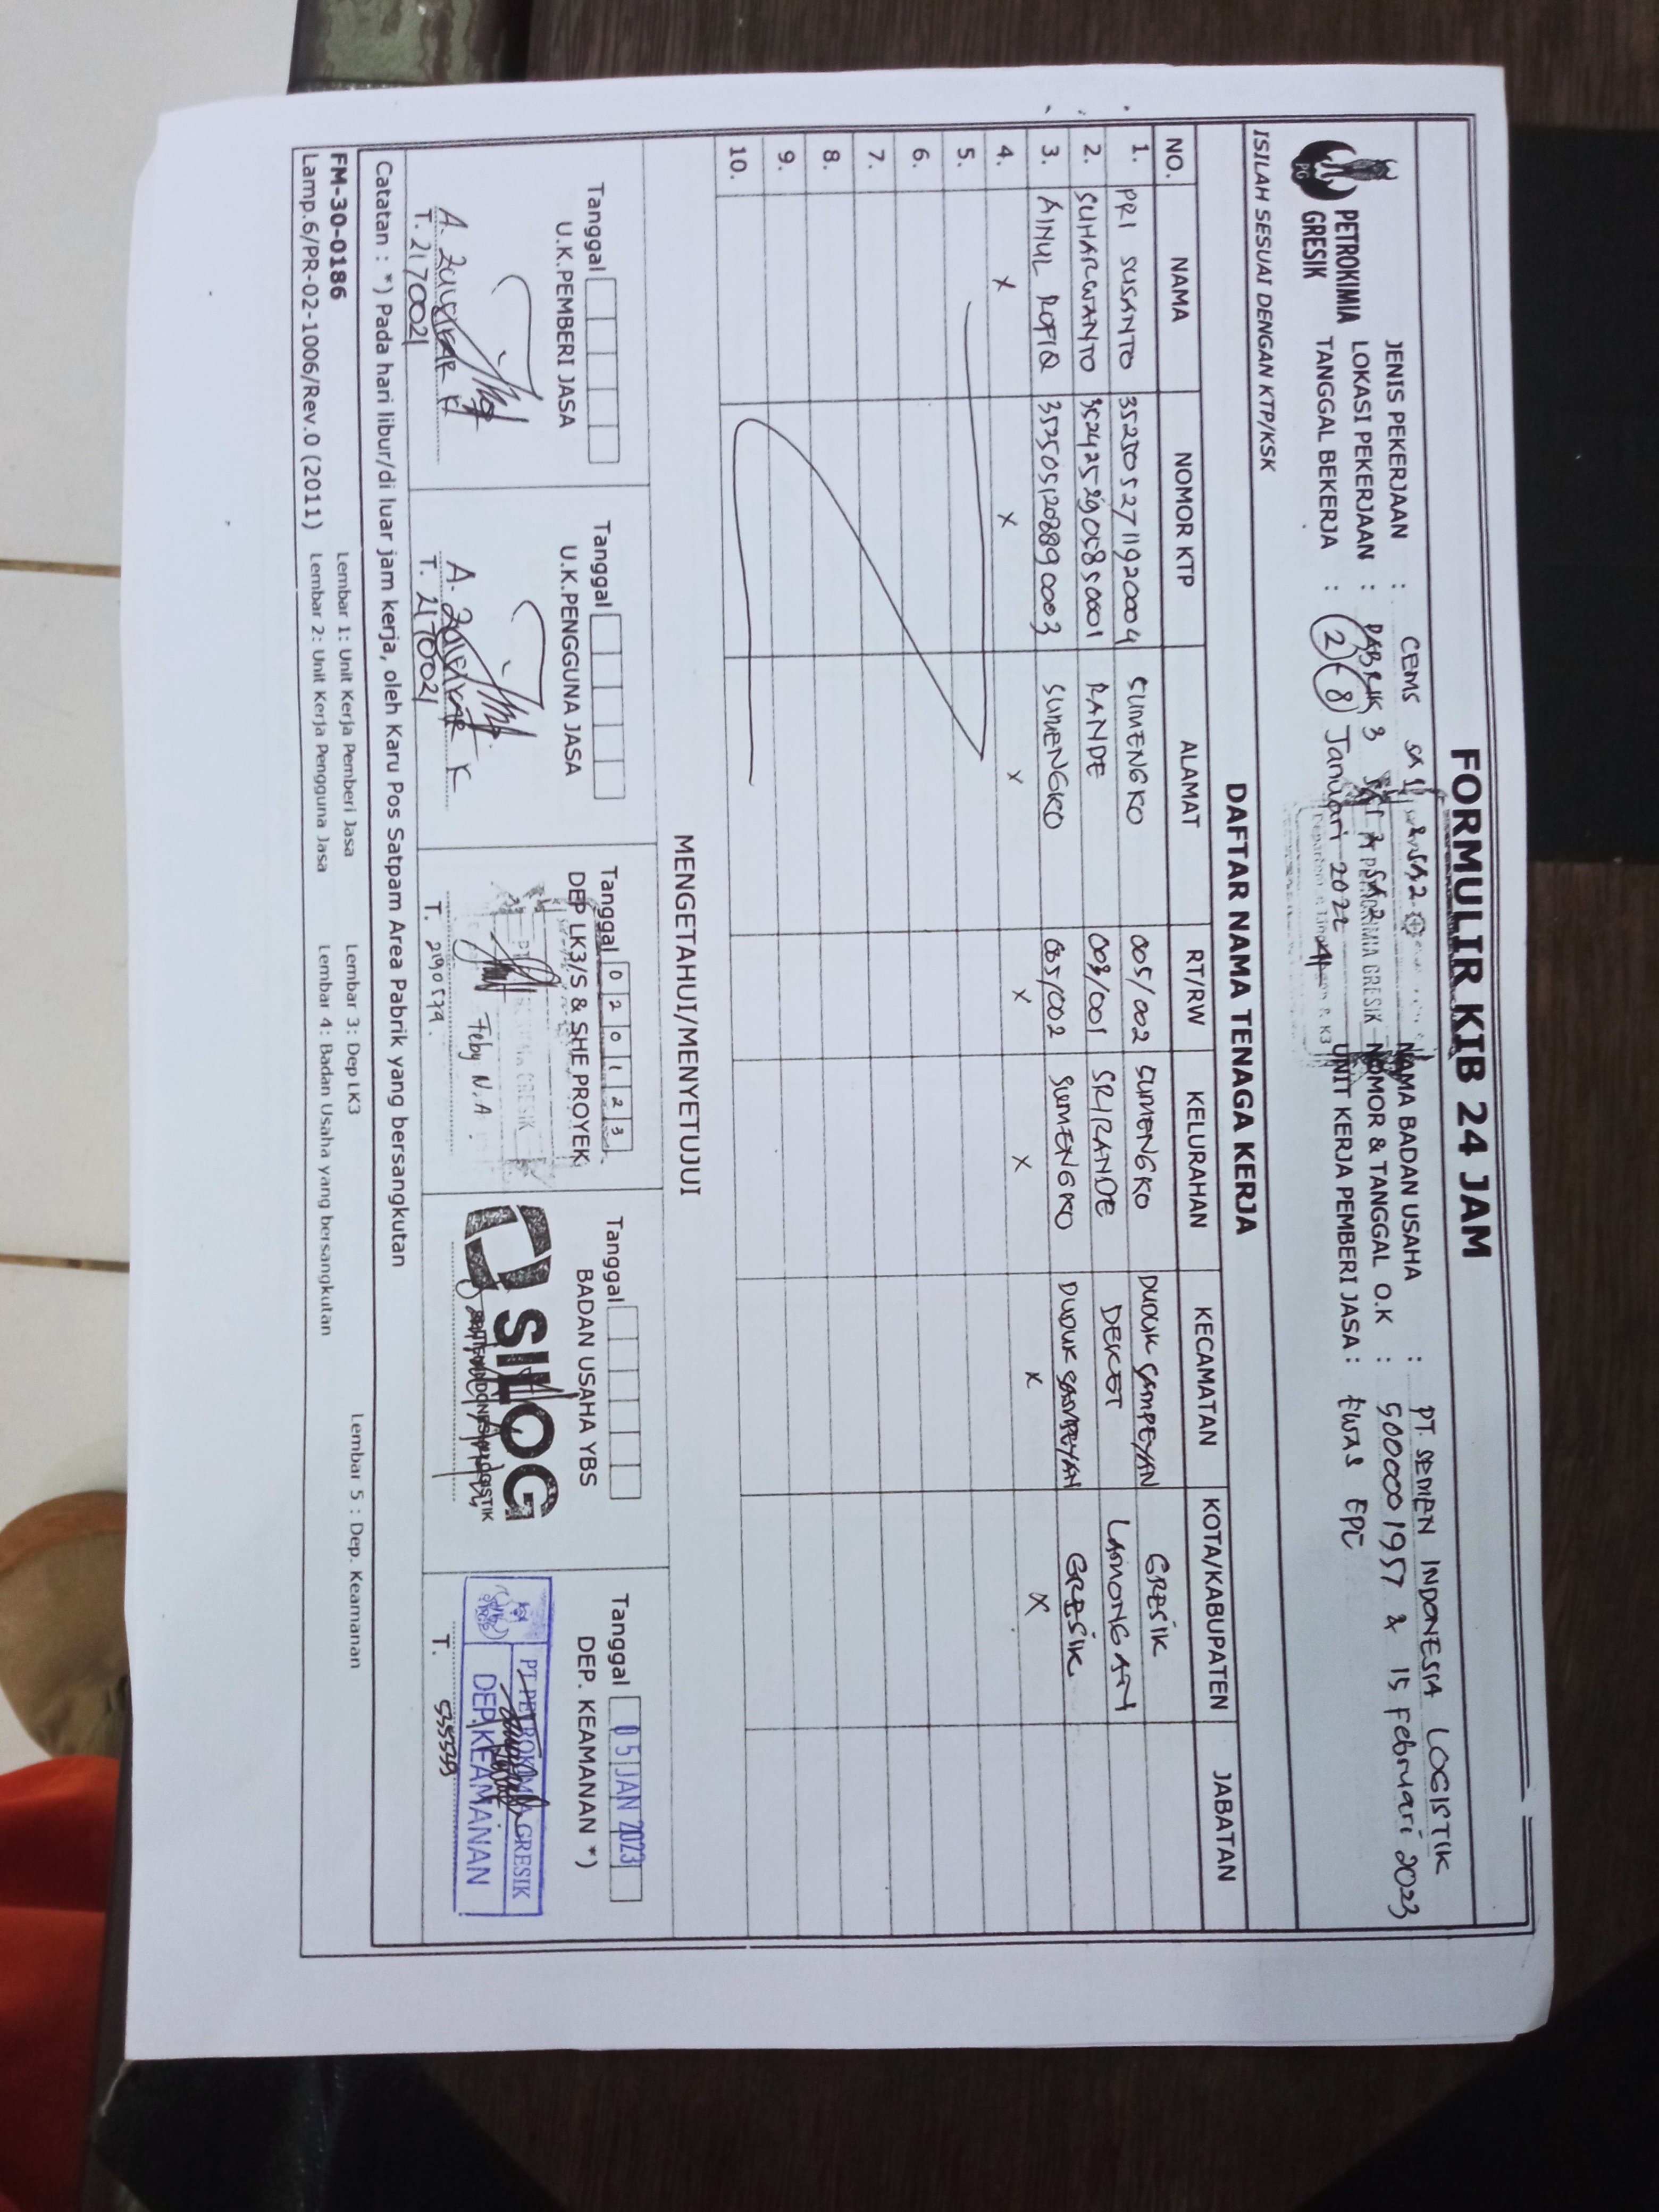 FORMULIR KIB 24 JAM
PETROKIMIA
GRESIK
JENIS PEKERJAAN : CEMS SA 1 & SA 2
LOKASI PEKERJAAN : PABRIK 3 SA 2
TANGGAL BEKERJA : 2 - 8 Januari 2022
NAMA BADAN USAHA : PT. SEMEN INDONESIA LOGISTIK
NOMOR & TANGGAL O.K : 5000001957 & 15 Februari 2023
UNIT KERJA PEMBERI JASA : EWAS EPC
PETROKIMIA GRESIK
ISILAH SESUAI DENGAN KTP/KSK
DAFTAR NAMA TENAGA KERJA
NO. NAMA NOMOR KTP ALAMAT RT/RW KELURAHAN KECAMATAN KOTA/KABUPATEN JABATAN
1. PRI SUSANTO 3525052711920004 SUMENGKO 005/002 SUMENGKO DUDUK SAMPEYAN GRESIK
2. SUHARWANTO 3524252905850001 RANDE 003/001 SRIRANDE DEKET LAMONGAN
3. AINUL ROFIQ 3525051208890003 SUMENGKO 005/002 SUMENGKO DUDUK SAMPEYAN GRESIK
4. X X X X X X X
5.
6.
7.
8.
9.
10.
MENGETAHUI/MENYETUJUI
Tanggal
U.K.PEMBERI JASA
T. 2170021
Tanggal
U.K.PENGGUNA JASA
T. 2170021
Tanggal 020123
DEP LK3/S & SHE PROYEK
Feby N.A
T. 2190579.
Tanggal
BADAN USAHA YBS
SILOG
SEMEN INDONESIA LOGISTIK
Tanggal 05 JAN 2023
DEP. KEAMANAN *)
PT PETROKIMIA GRESIK
DEP.KEAMANAN
T. 535539
Catatan : *) Pada hari libur/di luar jam kerja, oleh Karu Pos Satpam Area Pabrik yang bersangkutan
FM-30-0186
Lamp.6/PR-02-1006/Rev.0 (2011)
Lembar 1: Unit Kerja Pemberi Jasa
Lembar 2: Unit Kerja Pengguna Jasa
Lembar 3: Dep LK3
Lembar 4: Badan Usaha yang bersangkutan
Lembar 5 : Dep. Keamanan